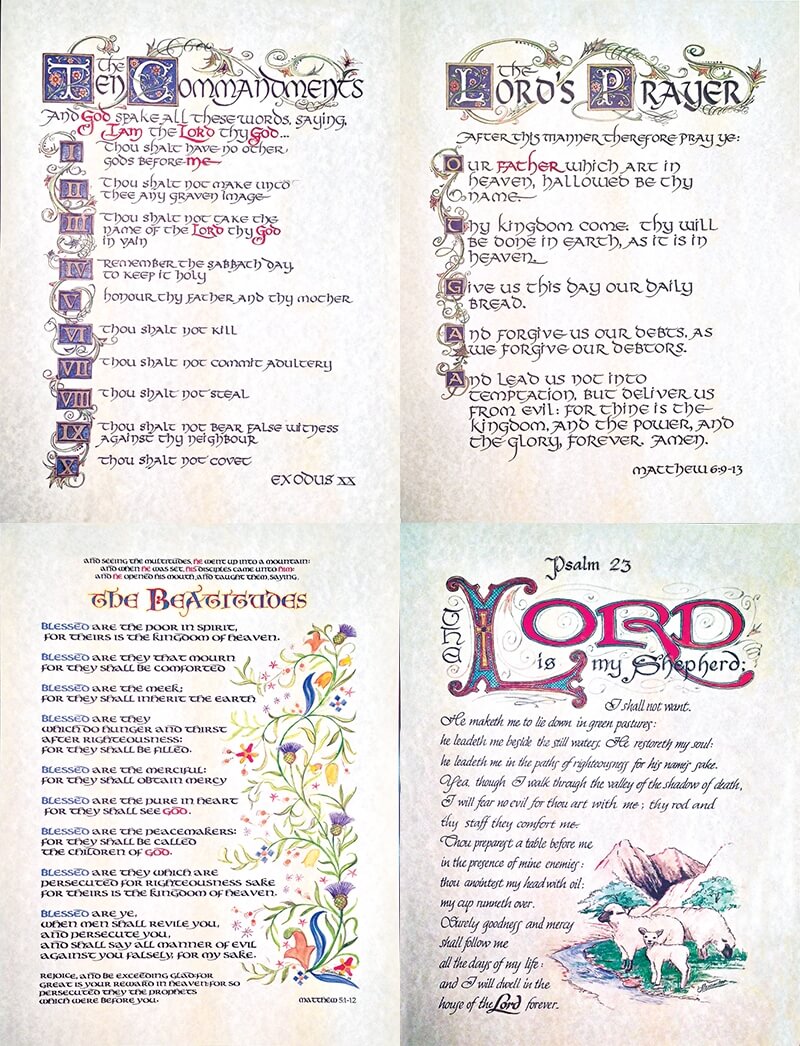 The Ten Commandments
And God spake all these words, saying,
I am the Lord thy God...
I Thou shalt have no other
gods before me
II Thou shalt not make unto
thee any graven image
III Thou shalt not take the
name of the Lord thy God
in vain
IV Remember the Sabbath day,
to keep it holy
V honour thy father and thy mother
VI thou shalt not kill
VII thou shalt not commit adultery
VIII thou shalt not steal
IX thou shalt not bear false witness
against thy neighbour
X thou shalt not covet
EXODUS XX
The Lord's Prayer
After this manner therefore pray ye:
Our father which art in
heaven, hallowed be thy
name
Thy kingdom come: thy will
be done in earth, as it is in
heaven
Give us this day our daily
bread.
And forgive us our debts, as
we forgive our debtors.
And lead us not into
temptation, but deliver us
from evil: for thine is the
kingdom, and the power, and
the glory, forever. Amen.
Matthew 6:9-13
and seeing the multitudes, he went up into a mountain:
and when he was set, his disciples came unto him:
and he opened his mouth, and taught them, saying,
The Beatitudes
Blessed are the poor in spirit,
for theirs is the kingdom of heaven.
Blessed are they that mourn
for they shall be comforted
Blessed are the meek;
for they shall inherit the earth
Blessed are they
which do hunger and thirst
after righteousness:
for they shall be filled.
Blessed are the merciful:
for they shall obtain mercy
Blessed are the pure in heart
for they shall see God.
Blessed are the peacemakers:
for they shall be called
the children of God.
Blessed are they which are
persecuted for righteousness sake
for theirs is the kingdom of heaven.
Blessed are ye,
when men shall revile you,
and persecute you,
and shall say all manner of evil
against you falsely, for my sake.
Rejoice, and be exceeding glad: for
great is your reward in heaven: for so
persecuted they the prophets
which were before you.
Matthew 5:1-12
Psalm 23
The Lord
is my Shepherd;
I shall not want.
He maketh me to lie down in green pastures:
he leadeth me beside the still waters. He restoreth my soul:
he leadeth me in the paths of righteousness for his name's sake.
Yea, though I walk through the valley of the shadow of death,
I will fear no evil for thou art with me; thy rod and
thy staff they comfort me.
Thou preparest a table before me
in the presence of mine enemies:
thou anointest my head with oil;
my cup runneth over.
Surely goodness and mercy
shall follow me
all the days of my life:
and I will dwell in the
house of the Lord forever.